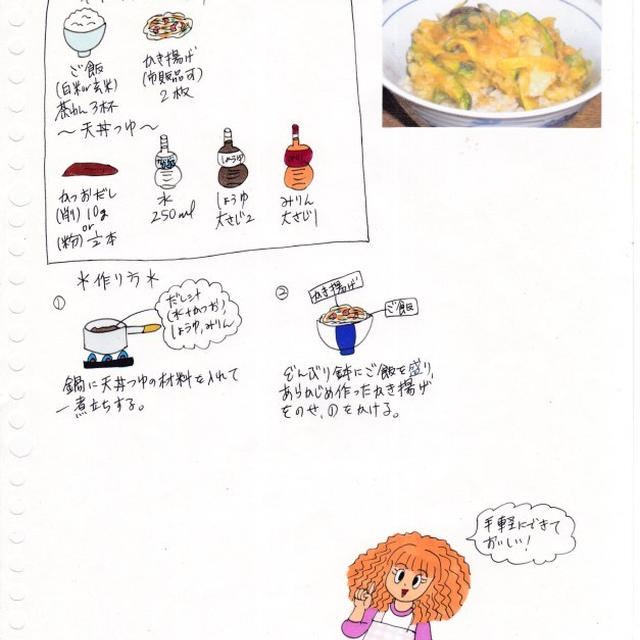 ご飯
(白米or玄米)
茶わん3杯
かき揚げ
(市販品可)
2枚
〜天丼つゆ〜
かつおだし
(削り)10g
or
(粉)½本
水
250ml
しょうゆ
しょうゆ
大さじ2
みりん
みりん
大さじ1
*作り方*
①
だし汁
(水+かつお),
しょうゆ,みりん
鍋に天丼つゆの材料を入れて
一煮立ちする。
②
かき揚げ
ご飯
どんぶり鉢にご飯を盛り,
あらかじめ作ったかき揚げ
をのせ,①をかける。
手軽にできて
おいしい!